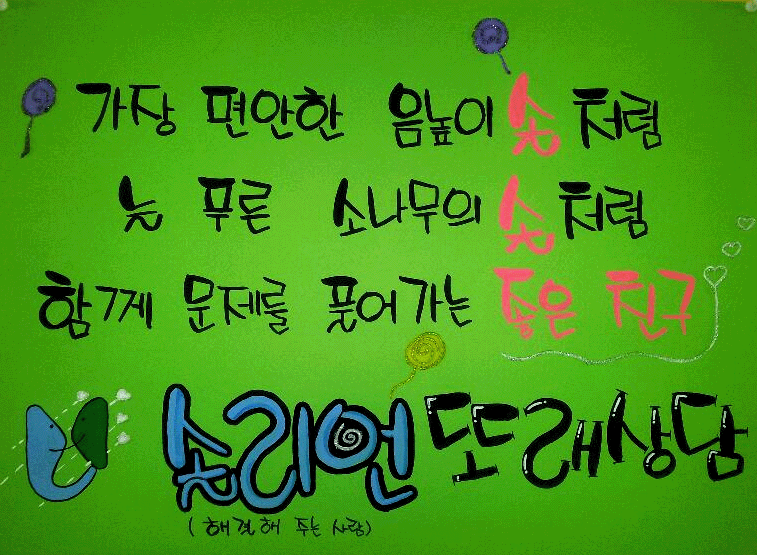 가장 편안한 음높이 솔처럼
늘 푸른 소나무의 솔처럼
함께 문제를 풀어가는 좋은 친구
솔리언 또래상담
(해결해 주는 사람)